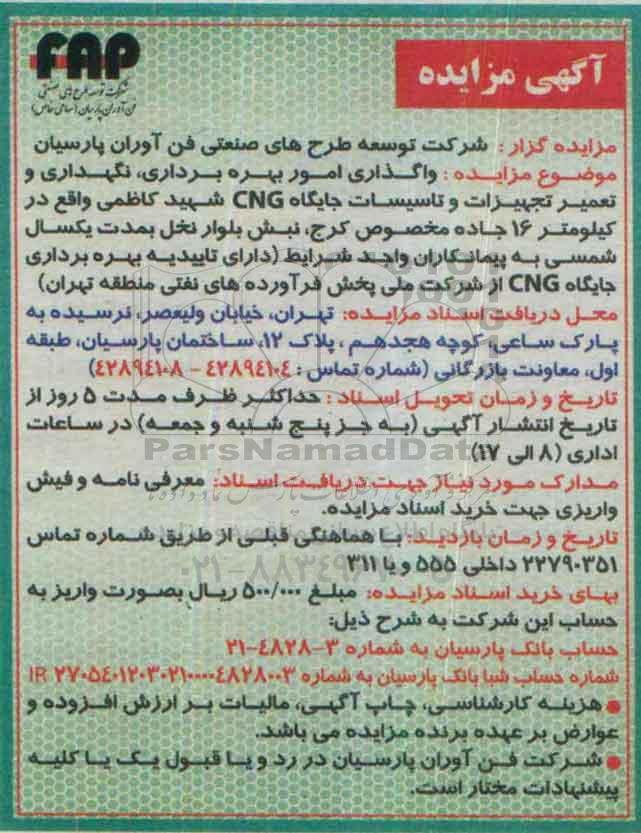 FAP
شرکت توسعه طرح های صنعتی
فن آوران پارسیان (سهامی خاص)
آگهی مزایده
مزایده گزار : شرکت توسعه طرح های صنعتی فن آوران پارسیان
موضوع مزایده : واگذاری امور بهره برداری، نگهداری و
تعمیر تجهیزات و تاسیسات جایگاه CNG شهید کاظمی واقع در
کیلومتر ۱۶ جاده مخصوص کرج، نبش بلوار نخل بمدت یکسال
شمسی به پیمانکاران واجد شرایط (دارای تاییدیه بهره برداری
جایگاه CNG از شرکت ملی پخش فرآورده های نفتی منطقه تهران)
محل دریافت اسناد مزایده: تهران، خیابان ولیعصر، نرسیده به
پارک ساعی، کوچه هجدهم ، پلاک ۱۲، ساختمان پارسیان، طبقه
اول، معاونت بازرگانی (شماره تماس : ۴۲۸۹۴۱۰۴ - ۴۲۸۹۴۱۰۸)
تاریخ و زمان تحویل اسناد : حداکثر ظرف مدت ۵ روز از
تاریخ انتشار آگهی (به جز پنج شنبه و جمعه) در ساعات
اداری (۸ الی ۱۷)
ParsNamadData
مدارک مورد نیاز جهت دریافت اسناد: معرفی نامه و فیش
واریزی جهت خرید اسناد مزایده.
تاریخ و زمان بازدید: با هماهنگی قبلی از طریق شماره تماس
۲۲۷۹۰۳۵۱ داخلی ۵۵۵ و یا ۳۱۱
بهای خرید اسناد مزایده: مبلغ ۵۰۰/۰۰۰ ریال بصورت واریز به
حساب این شرکت به شرح ذیل:
حساب بانک پارسیان به شماره ۳-۴۸۲۸-۲۱
شماره حساب شبا بانک پارسیان به شماره IR ۲۷۰۵۴۰۱۲۰۳۰۲۱۰۰۰۰۴۸۲۸۰۰۳
● هزینه کارشناسی، چاپ آگهی، مالیات بر ارزش افزوده و
عوارض بر عهده برنده مزایده می باشد.
● شرکت فن آوران پارسیان در رد و یا قبول یک یا کلیه
پیشنهادات مختار است.